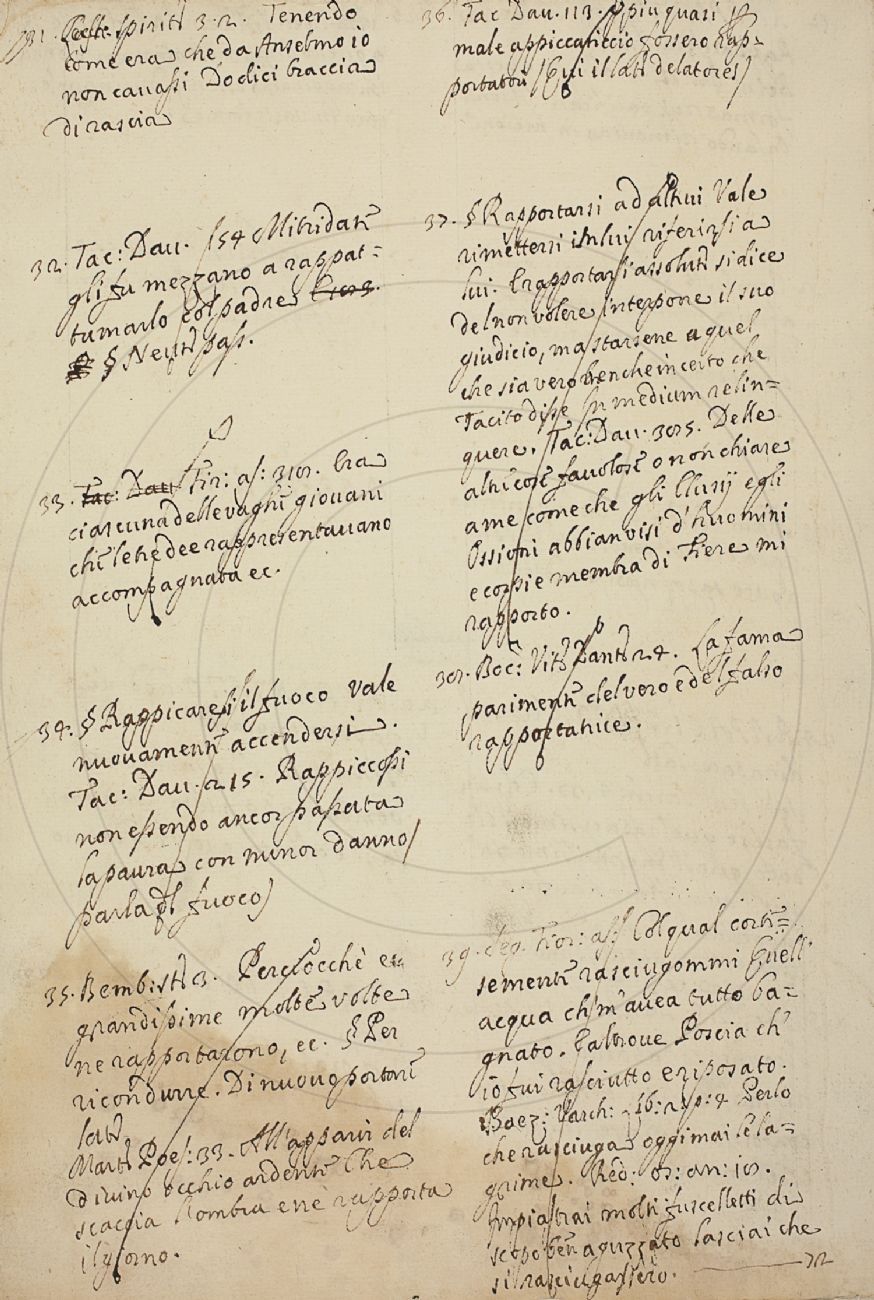 31. spiriti 3. 2. Tenendo
come era che da Anselmo io
non cavassi Dodici braccia
di rascia
32. Tac: Dav. 154 Mitridate
gli fu mezzano a rappat=
tumarlo col padre
§ Neut. pass.
33. Tac: Dav Fir: as: 310. Era
ciascuna delle vaghe giovani
che le tre dee rappresentavano
accompagnata ec.
34. § Rappicaresi il fuoco vale
nuovamente accendersi.
Tac: Dav. 215. Rappiccossi
non essendo ancor passata
la paura con minor danno
parla del fuoco)
35. Bemb: st. 3. Perciocchè e
grandissime molte volte
ne rapportarono, ec. § Per
ricondurre. Di nuovo portare
lat.
Mart. Poes: 33. All'apparir del
divino occhio ardente Che
scaccia l'ombra e ne rapporta
il giorno.
36. Tac Dav. 113. più quasi
male appiccaticcio fossero rap=
portatori (Qui il lat. delatores)
37. § Rapportarsi ad altrui Vale
rimettersi in lui riferirsi a
lui. E rapportarsi assolut. si dice
del non volere interporre il suo
giudicio, ma starsene a quel
che sia vero benche incerto che
Tacito disse In medium relin=
quere. Tac: Dav. 305. Delle
altre cose favolose o non chiare
a me come che gli Elusij e gli
Ossioni abbian visi d'huomini
e corpi e membra di Fiere mi
rapporto.
38. Boc: Vit. Dant. 24. La fama
parimente del vero e del falso
rapportatrice.
39. Seg. Fior: as. Col qual corte=
semente rasciugommi quell'
acqua che m'avea tutto ba=
gnato. E altrove Poscia ch'
io fui rasciutto e riposato.
Boez: Varch: Perlo
che rasciuga oggimai le la=
grime. Red: os: an: 10.
Impiastrai molti fuscelletti di
scopo ben aguzzato lasciai che
si rasciugassero. 72